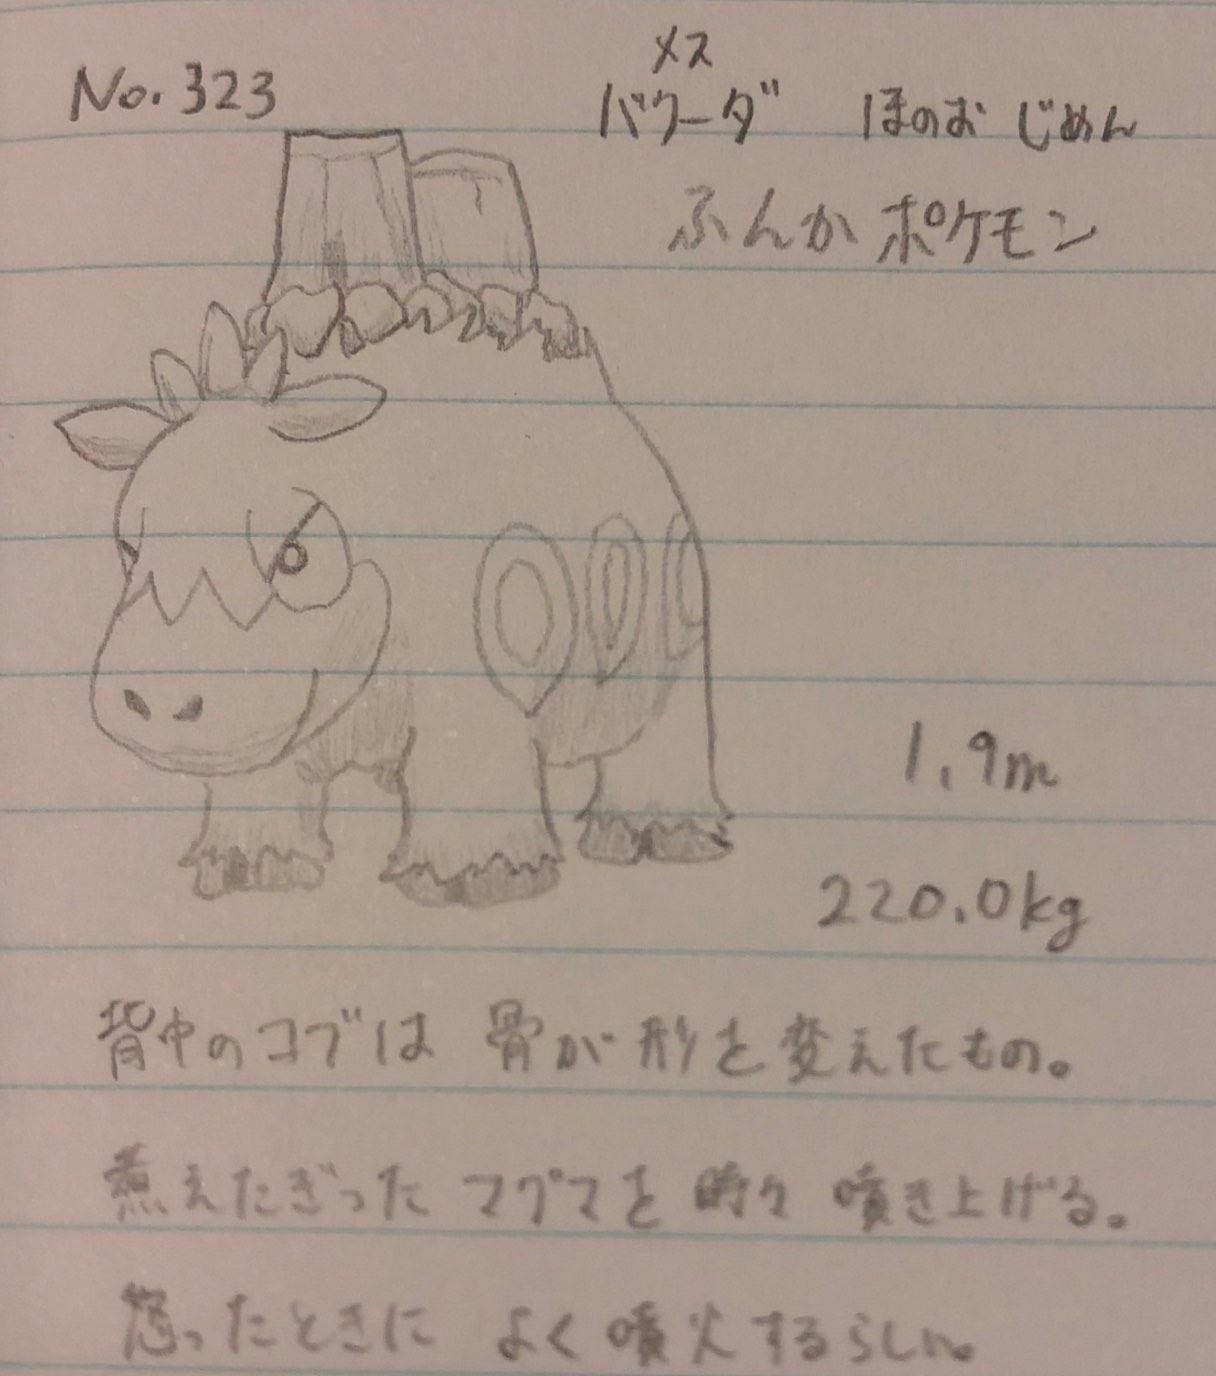 No.323
メス
バクーダ ほのお じめん
ふんか ポケモン
1.9m
220.0kg
背中のコブは 骨が形を変えたもの。
煮えたぎった マグマを 時々 噴き上げる。
怒ったときに よく噴火するらしい。